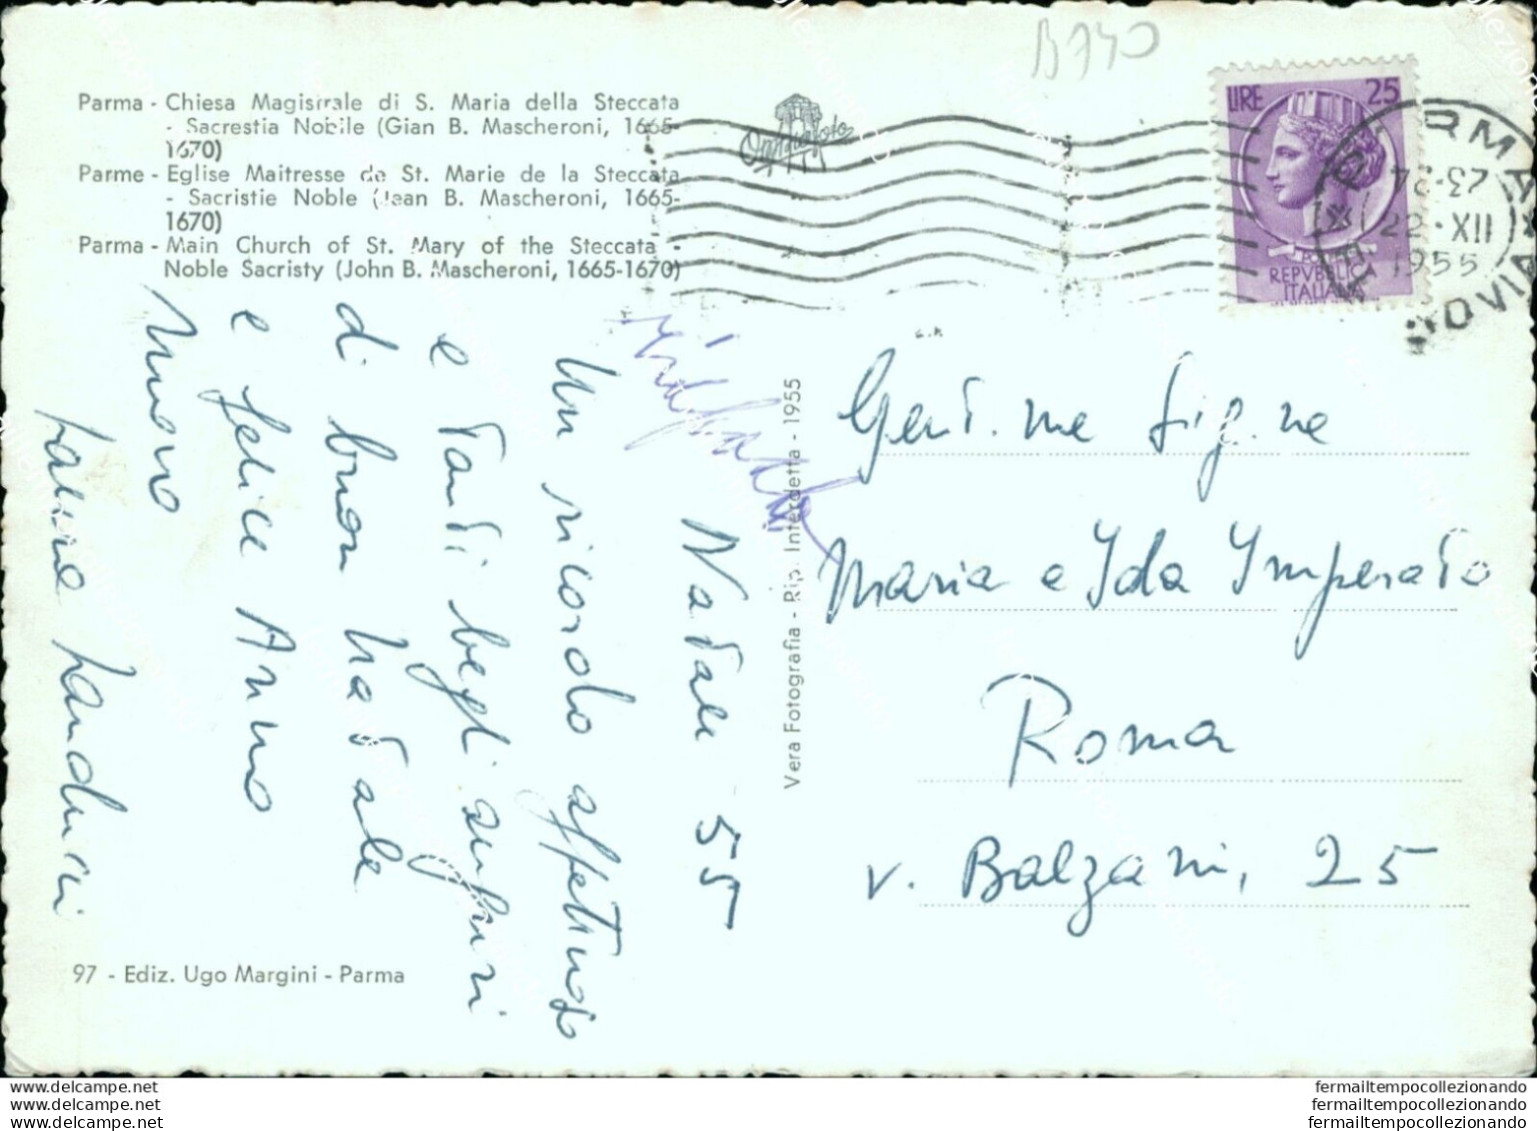 B740
Parma - Chiesa Magistrale di S. Maria della Steccata
- Sacrestia Nobile (Gian B. Mascheroni, 1665-
1670)
Parme - Eglise Maitresse de St. Marie de la Steccata
- Sacristie Noble (Jean B. Mascheroni, 1665-
1670)
Parma - Main Church of St. Mary of the Steccata -
Noble Sacristy (John B. Mascheroni, 1665-1670)
LIRE 25
REPVBBLICA
ITALIANA
22·XII
1955
Natale 55
Un ricordo affettuoso
e tanti begli auguri
di buon Natale
e felice Anno
nuovo
Vera Fotografia - Rip. Interdetta - 1955
Gent.me Sig.ne
Maria e Ida Imperato
Roma
v. Balzani, 25
97 - Ediz. Ugo Margini - Parma
www.delcampe.net
www.delcampe.net
www.delcampe.net
fermailtempocollezionando
fermailtempocollezionando
fermailtempocollezionando